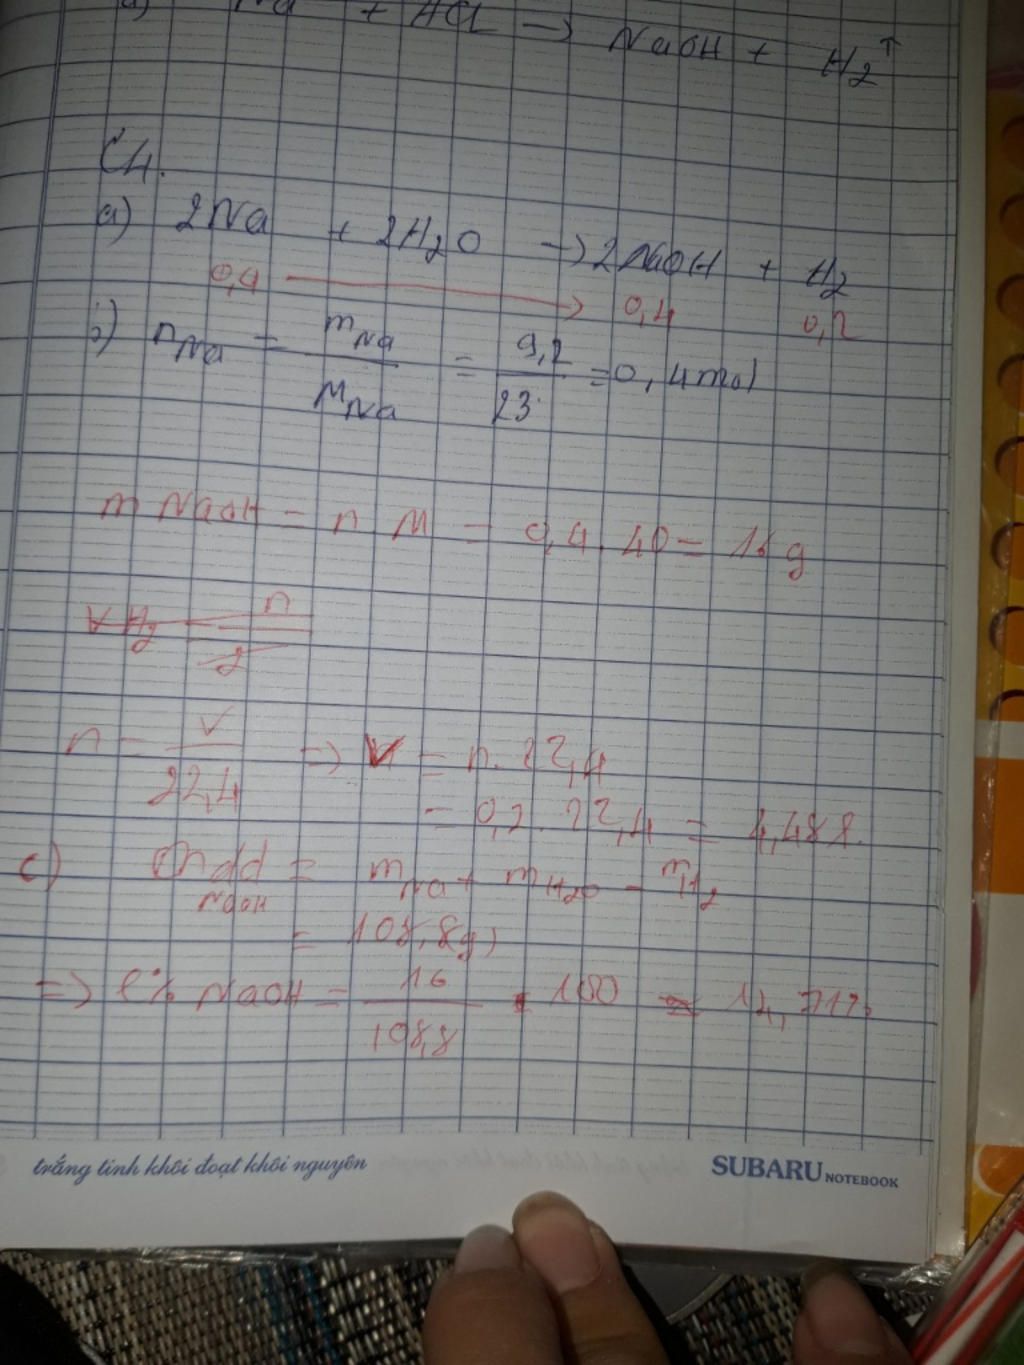 a) Na + HCl → NaOH + H2↑
C4.
a) 2Na + 2H2O → 2NaOH + H2
0,4 → 0,4 0,2
b) nNa = mNa / MNa = 9,2 / 23 = 0,4 mol
m NaOH = n M = 0,4 . 40 = 16 g
V H2 = n / 2
n = V / 22,4 => V = n. 22,4
= 0,2 . 22,4 = 4,488.
c) mdd NaOH = mNa + mH2O - mH2
= 108,8g)
=> C% NaOH = 16 / 108,8 . 100 = 14,71%
trắng tinh khôi đoạt khôi nguyên
SUBARU NOTEBOOK